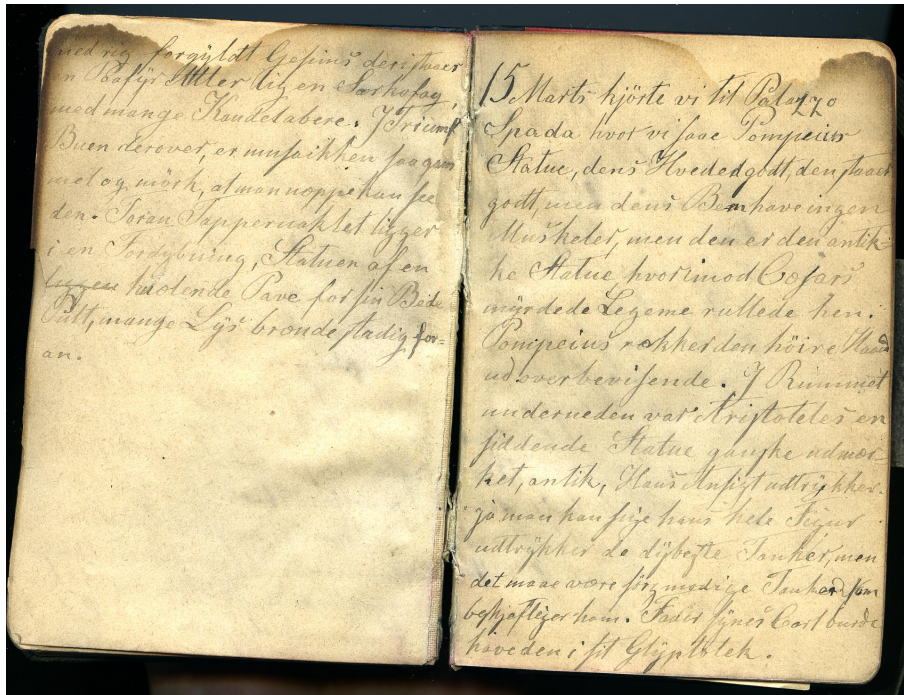 med rig forgyldt Gesims deri staaer
n Porfyr Alter lig en Sarkofag,
med mange Kandelabere. I Triumf
Buen derover, er musaikken saa gam
mel og mörk, at man neppe kan see
den. Foran Tappernaklet ligger
i en Fordybning, Statuen af en
knelende Pave for sin Bede
Pult, mange Lys brænde stadig for=
an.
15 Marts kjörte vi til Palazzo
Spada hvor vi saae Pompeius
Statue, dens Hvede godt, den staaer
godt, men dens Ben have ingen
Muskeler, men den er den antik=
ke Statue hvorimod Cæsars
myrdede Legeme rullede hen.
Pompeius rækker den höire Haand
ud overbevisende. I Rummet
underneden var Aristoteles en
siddende Statue ganske udmær
ket, antik, Hans Ansigt udtrykker
ja man kan sige hans hele Figur
udtrykker de dybeste Tanker, men
det maae være sörgmodige Tanker som
beskjæftiger ham. Fader synes Carl burde
have den i sit Glyptotek.